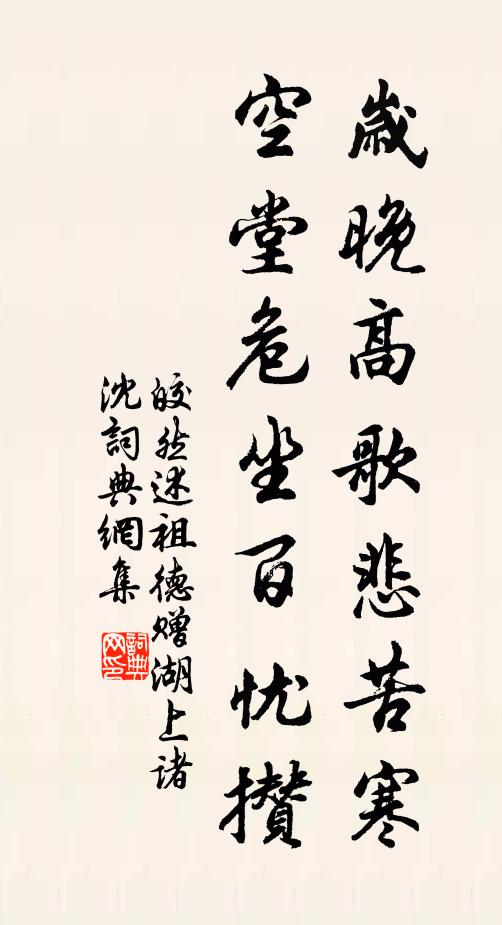 歲晚高歌悲苦寒
空堂危坐百忧攅
皎然述祖德赠湖上诸
沈詞典網集
詞典